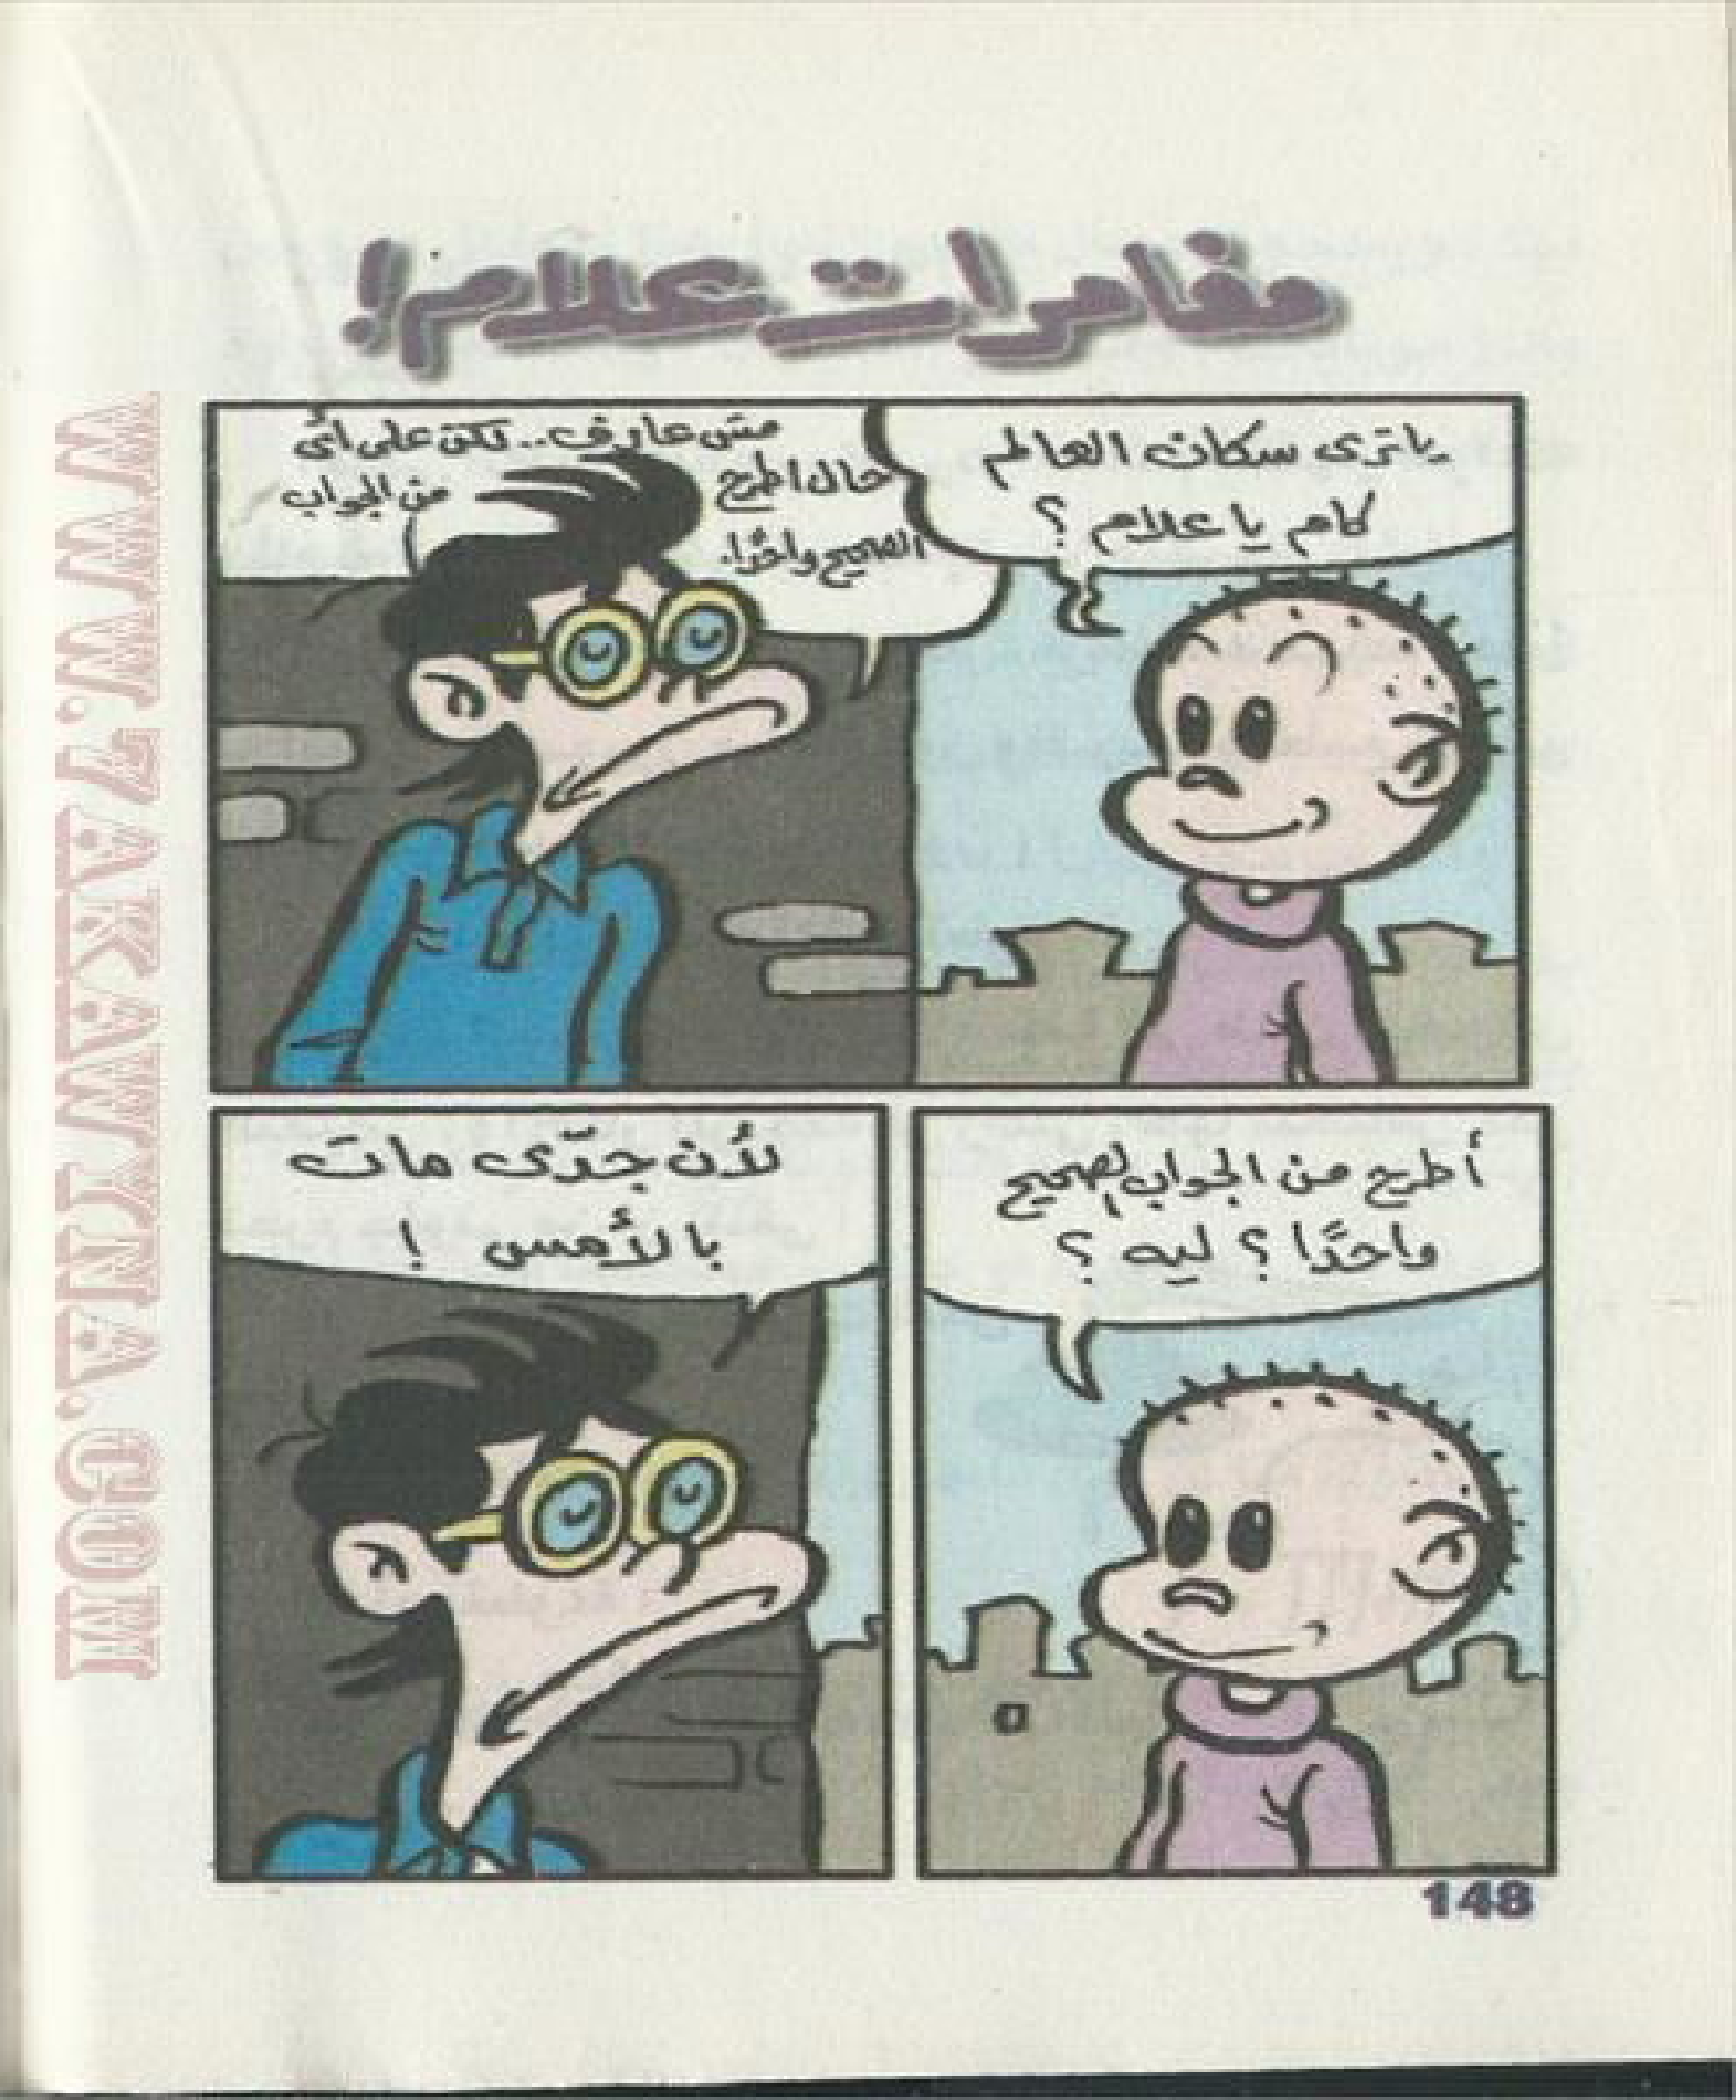 مغامرات علام!
ياترى سكان العالم
كام يا علام ؟
مش عارف.. لكن على أى
حال اطرح
من الجواب
الصحيح واحدًا.
أطرح من الجواب الصحيح
واحدًا ؟ ليه ؟
لأن جدّى مات
بالأمس !
148
WWW.7AKAWINA.COM